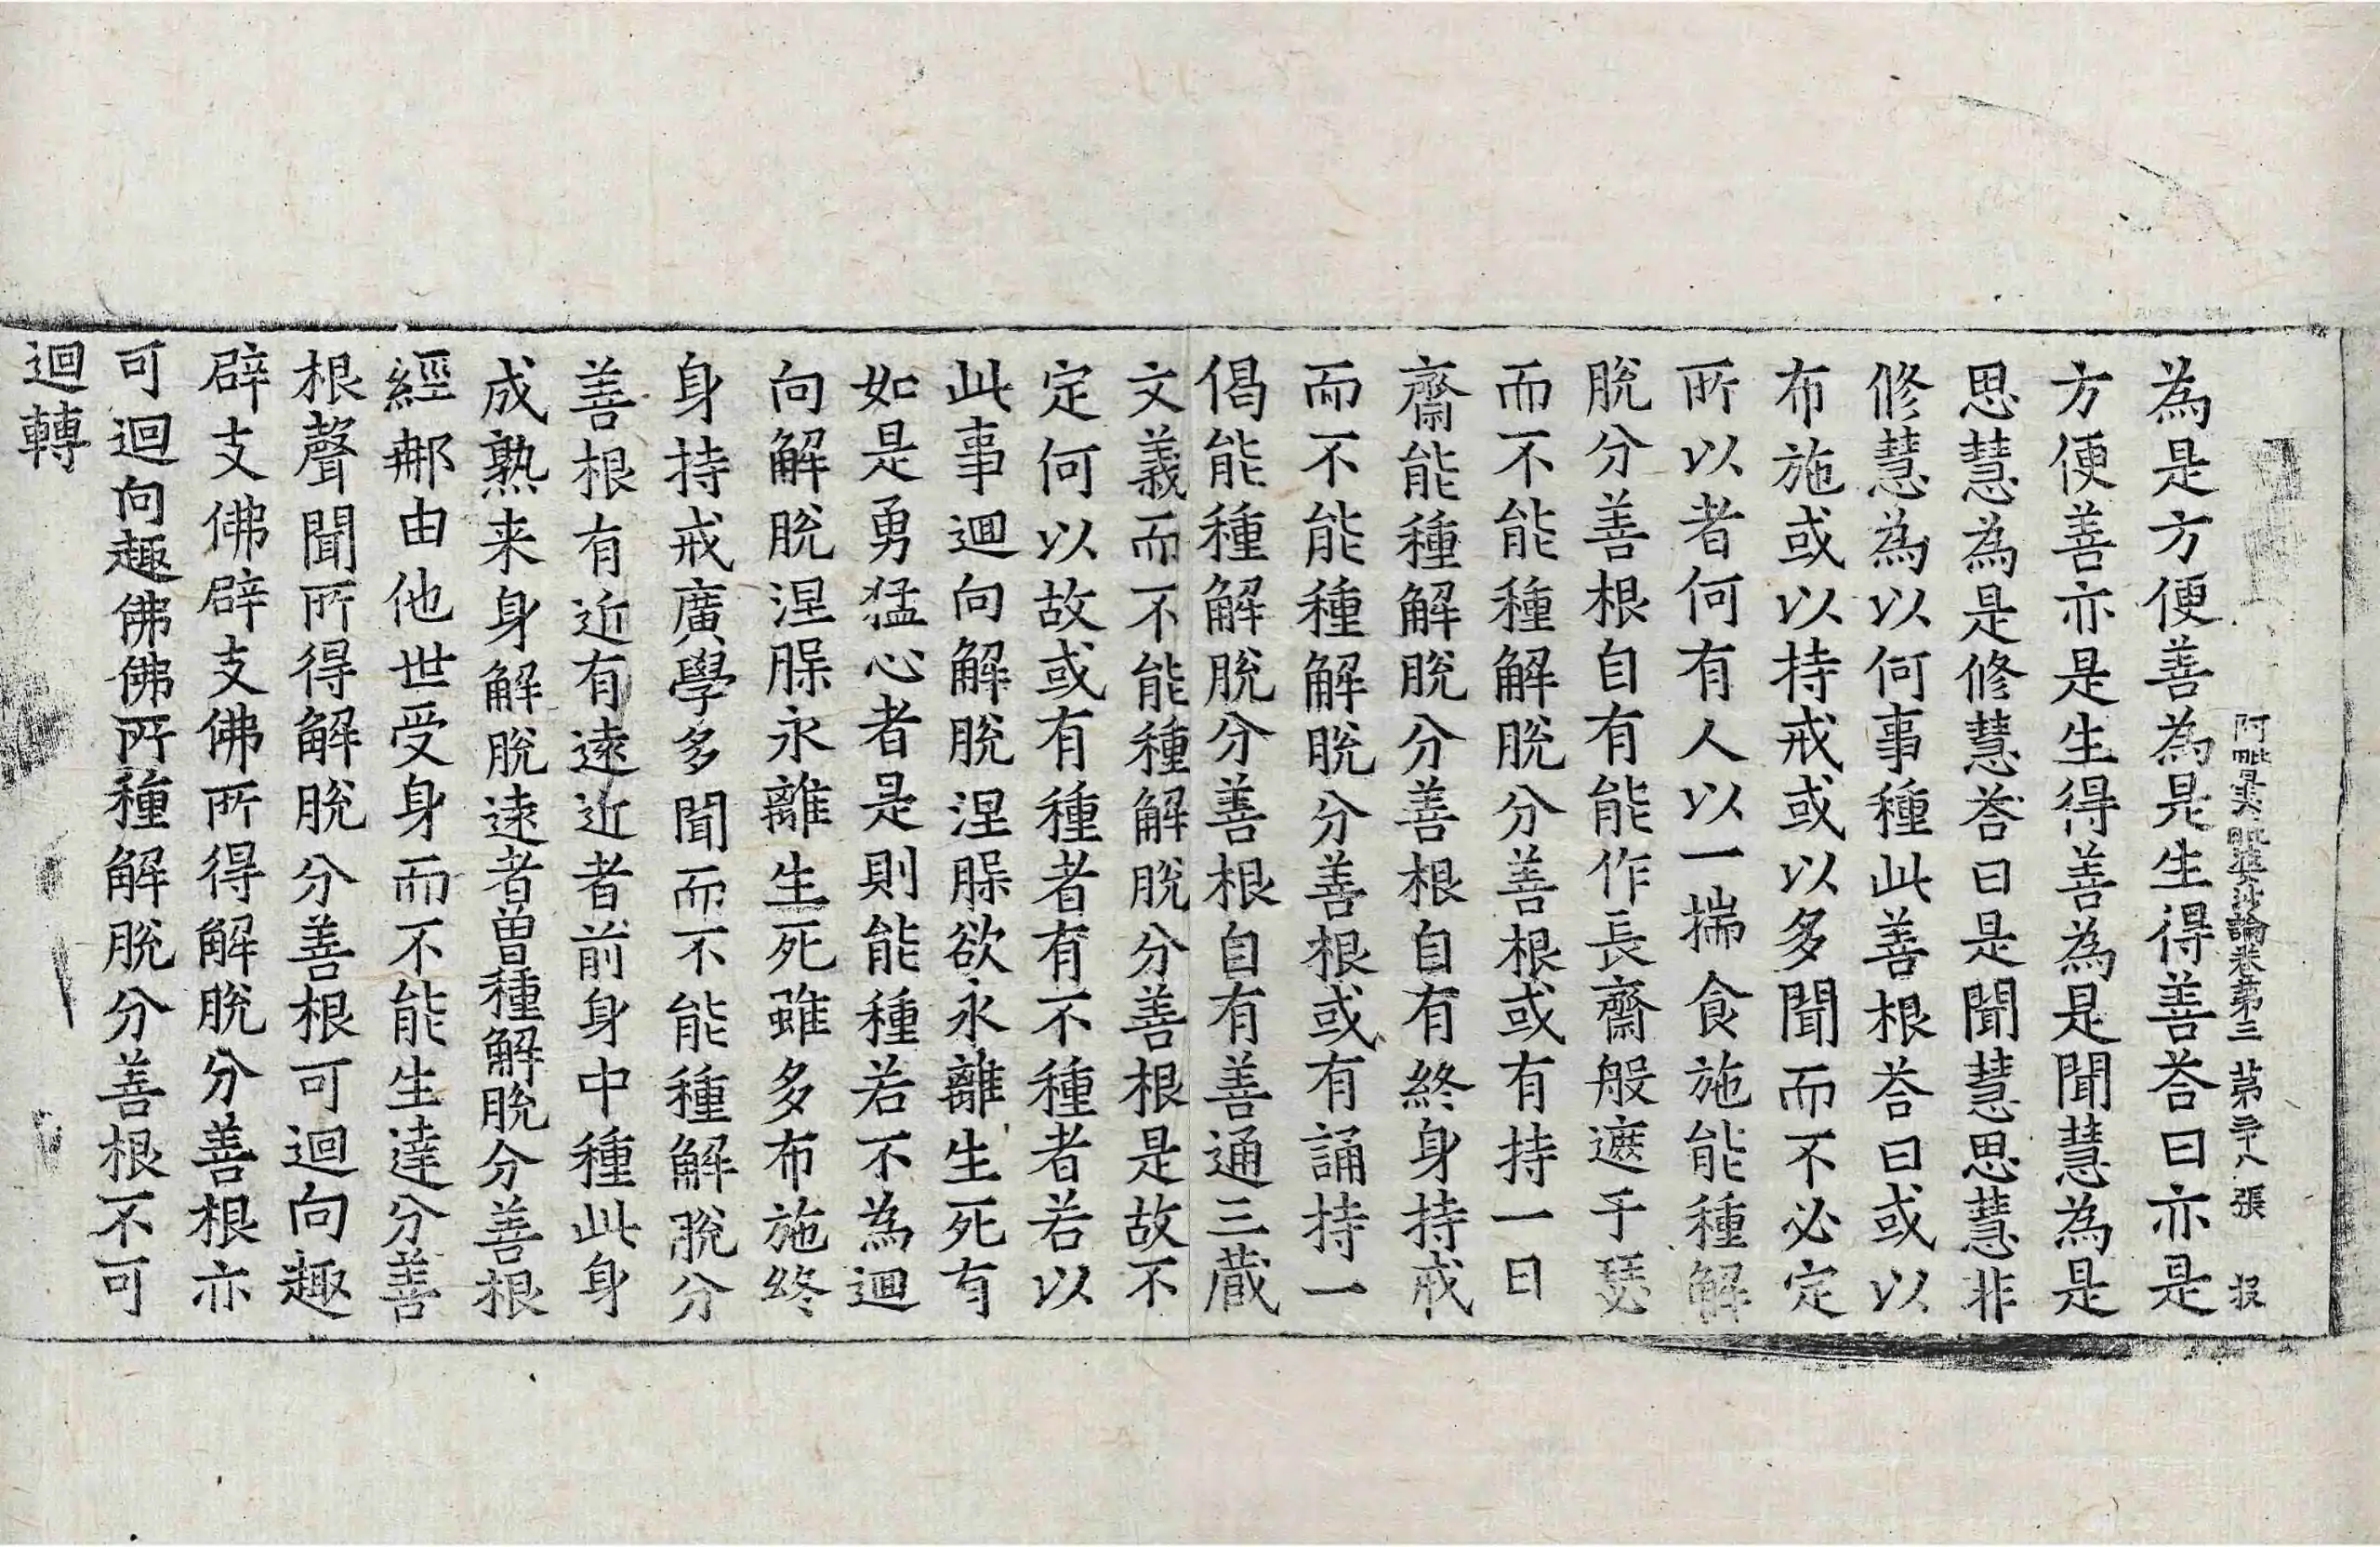 阿毗曇毗婆沙論卷第三　第三十八張　投
為是方便善為是生得善荅曰亦是
方便善亦是生得善為是聞慧為是
思慧為是修慧荅曰是聞慧思慧非
修慧為以何事種此善根荅曰或以
布施或以持戒或以多聞而不必定
所以者何有人以一揣食施能種解
脫分善根自有能作長齋般遮于瑟
而不能種解脫分善根或有持一日
齋能種解脫分善根自有終身持戒
而不能種解脫分善根或有誦持一
偈能種解脫分善根自有善通三藏
文義而不能種解脫分善根是故不
定何以故或有種者有不種者若以
此事迴向解脫涅槃欲永離生死有
如是勇猛心者是則能種若不為迴
向解脫涅槃永離生死雖多布施終
身持戒廣學多聞而不能種解脫分
善根有近有遠近者前身中種此身
成熟来身解脫遠者曽種解脫分善根
經那由他世受身而不能生達分善
根聲聞所得解脫分善根可迴向趣
辟支佛辟支佛所得解脫分善根亦
可迴向趣佛佛所種解脫分善根不可
迴轉